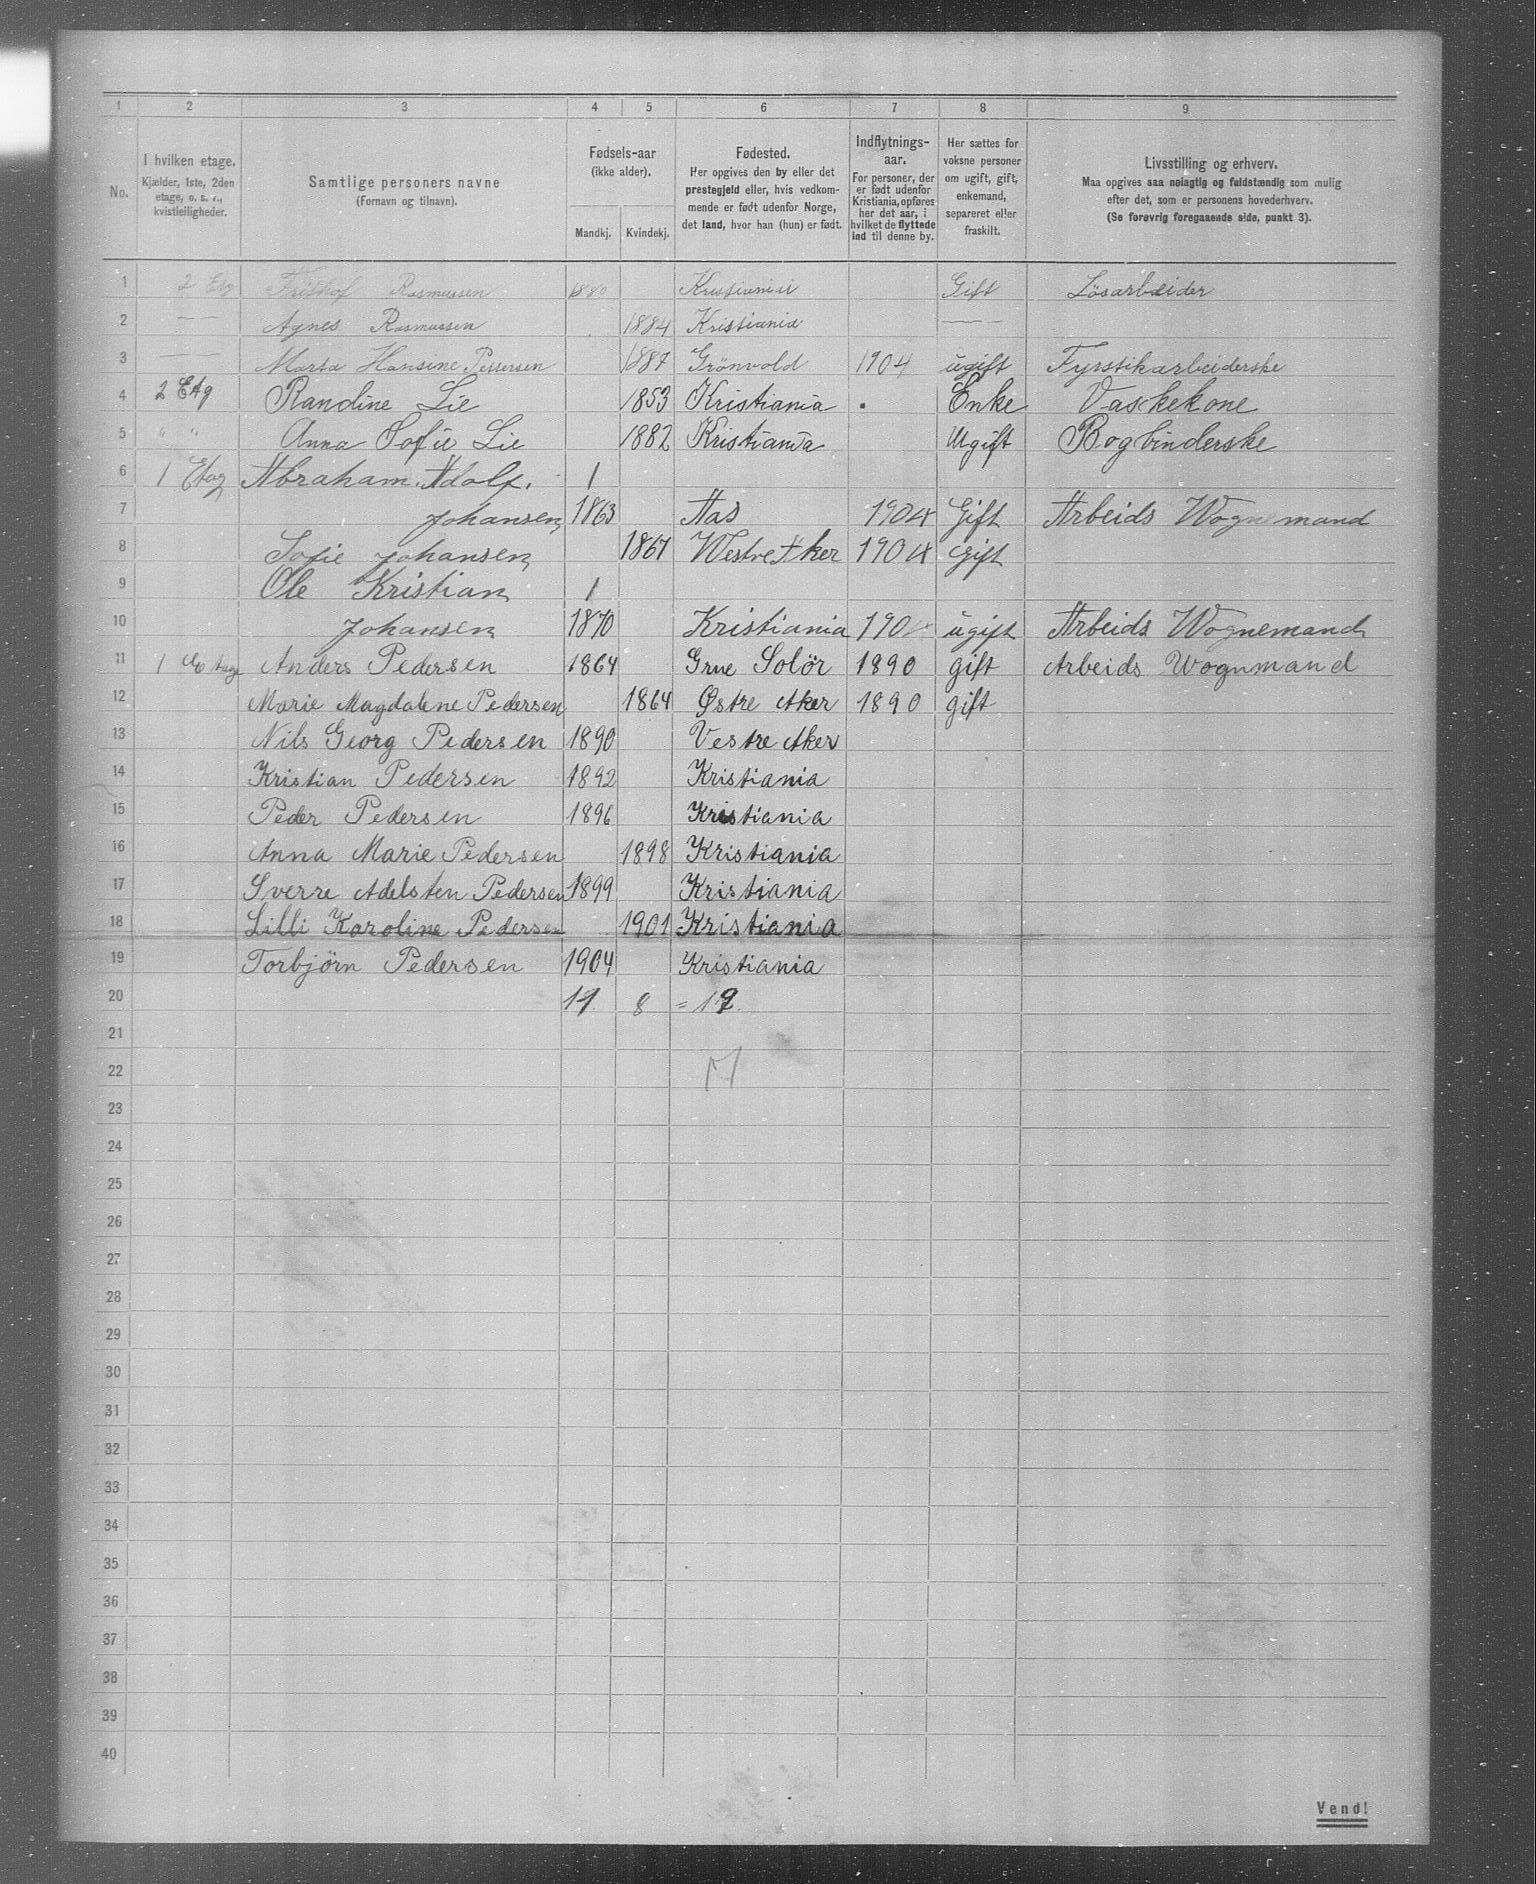 1 2 3 4 5 6 7 8 9
No.
I hvilken etage.
Kjælder, 1ste, 2den
etage, o. s. v.,
kvistleiligheder.
Samtlige personers navne
(Fornavn og tilnavn).
Fødsels-aar
(ikke alder).
Mandkj. Kvindekj.
Fødested.
Her opgives den by eller det
prestegjeld eller, hvis vedkom-
mende er født udenfor Norge,
det land, hvor han (hun) er født.
Indflytnings-
aar.
For personer, der
er født udenfor
Kristiania, opføres
her det aar, i
hvilket de flyttede
ind til denne by.
Her sættes for
voksne personer
om ugift, gift,
enkemand,
separeret eller
fraskilt.
Livsstilling og erhverv.
Maa opgives saa nøiagtig og fuldstændig som mulig
efter det, som er personens hovederhverv.
(Se forøvrig foregaaende side, punkt 3).
1 2 Etg Frithof Rasmussen 1880 Kristiania Gift Lösarbeider
2 — — Agnes Rasmussen 1884 Kristiania — —
3 — — Marta Hansine Pettersen 1887 Grönvold 1904 ugift Fyrstikarbeiderske
4 2 Etg Randine Lie 1853 Kristiania . Enke Vaskekone
5 " " Anna Sofie Lie 1882 Kristiania Ugift Bogbinderske
6 1 Etag Abraham Adolf. 1
7 Johansen 1863 Aas 1904 Gift Arbeids Wognemand
8 Sofie Johansen 1867 Westre Aker 1904 gift
9 Ole Kristian 1
10 Johansen 1870 Kristiania 1904 ugift Arbeids Wognemand
11 1 Anders Pedersen 1864 Grue Solör 1890 gift Arbeids Wognmand
12 Marie Magdalene Pedersen 1864 Østre Aker 1890 gift
13 Nils Georg Pedersen 1890 Vestre Aker
14 Kristian Pedersen 1892 Kristiania
15 Peder Pedersen 1896 Kristiania
16 Anna Marie Pedersen 1898 Kristiania
17 Sverre Adelsten Pedersen 1899 Kristiania
18 Lilli Karoline Pedersen 1901 Kristiania
19 Torbjörn Pedersen 1904 Kristiania
20 8 =
21
22
23
24
25
26
27
28
29
30
31
32
33
34
35
36
37
38
39
40
Vend!